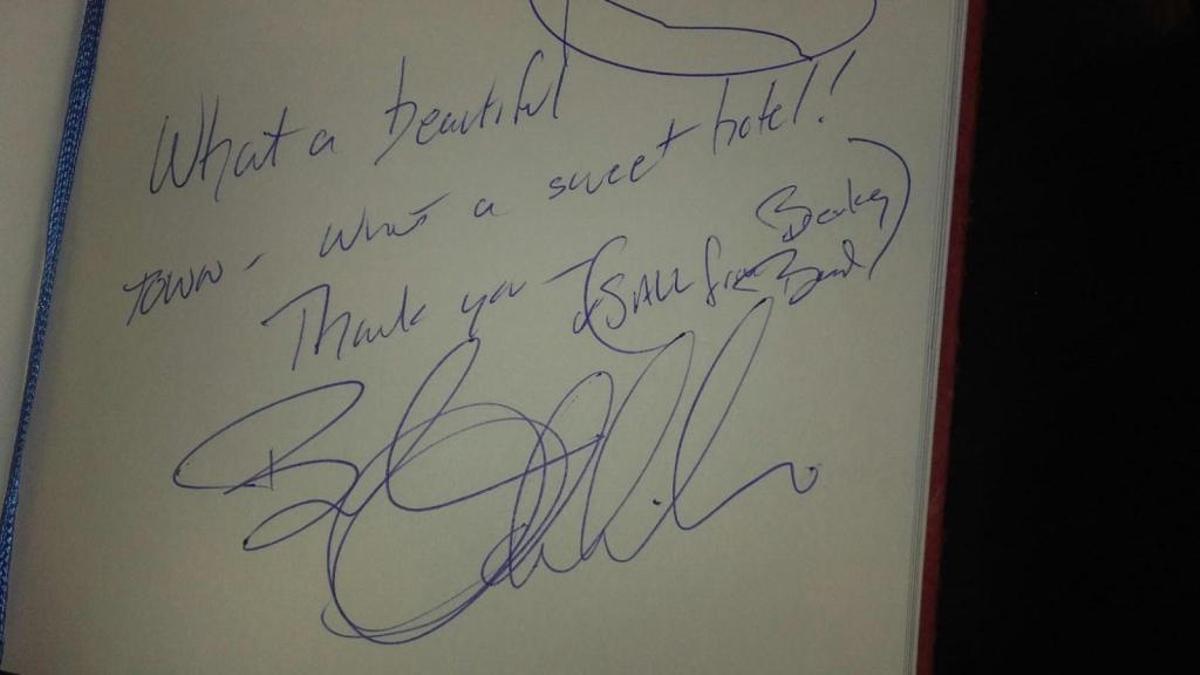 What a beautiful
TOWN - what a sweet hotel!
Thank you - from Band)